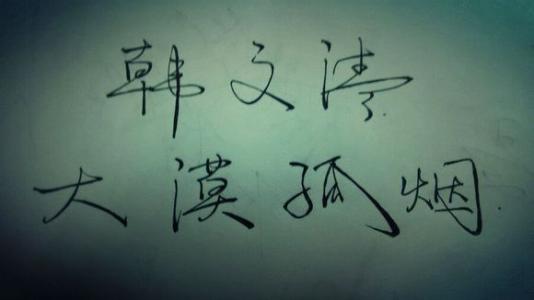 韩文清
大漠孤烟